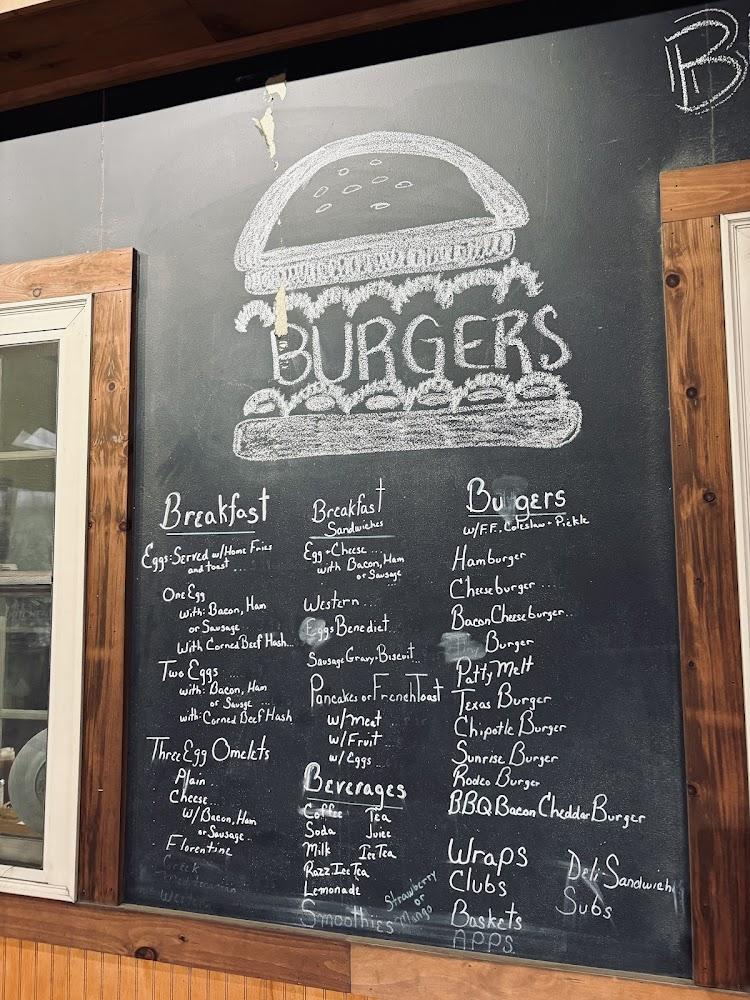 B
BURGERS
Breakfast
Eggs: Served w/Home Fries
and toast ...
One Egg
with: Bacon, Ham
or Sausage
With Corned Beef Hash...
Two Eggs ...
with: Bacon, Ham
or Sausge ...
with: Corned Beef Hash
Three Egg Omelets
Plain ...
Cheese ...
w/ Bacon, Ham
or Sausage ...
Florentine
Greek
Western
Breakfast
Sandwiches
Egg + Cheese ...
with Bacon, Ham
or Sausage
Western ...
Eggs Benedict ...
Sausage Gravy + Biscuit ...
Pancakes or French Toast
w/ Meat
w/ Fruit
w/ Eggs
Beverages
Coffee Tea
Soda Juice
Milk Ice Tea
Razz Ice Tea
Lemonade
Smoothies Strawberry
or
Mango
Burgers
w/ F.F., Coleslaw + Pickle
Hamburger
Cheeseburger ....
Bacon Cheeseburger ...
Burger
Patty Melt
Texas Burger
Chipotle Burger
Sunrise Burger
Rodeo Burger
BBQ Bacon Cheddar Burger
Wraps
Clubs
Baskets
APPS
Deli Sandwich
Subs